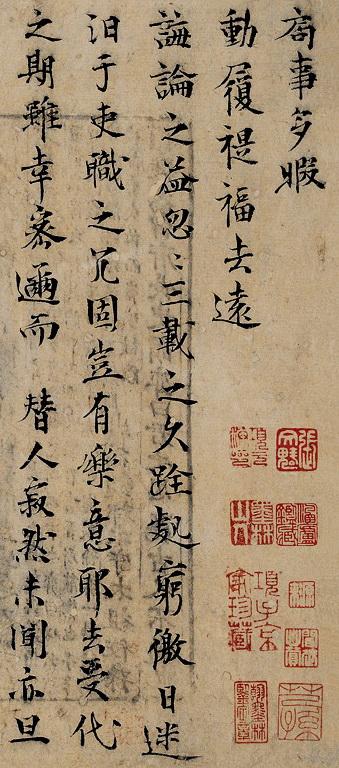 局事多暇
動履禔福去遠
誨論之益忽〻三載之久跧處窮徼日迷
汨于吏職之冗固豈有樂意耶去受代
之期雖幸密邇而 替人寂然未聞亦旦
項子京家珍藏